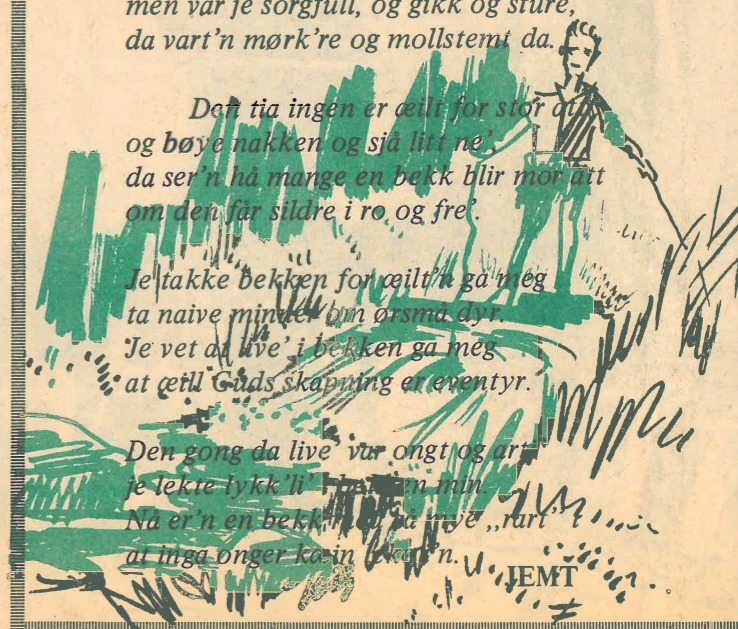 men var je sorgfull, og gikk og sture,
da vart'n mørk're og mollstemt da.
Den tia ingen er æilt for stor att
og bøye nakken og sjå litt ne',
da ser'n hå mange en bekk blir mor att
om den får sildre i ro og fre'.
Je takke bekken for æilt'n ga meg
ta naive minder om ørsmå dyr.
Je vet at live' i bekken ga meg
at æill Guds skapning er eventyr.
Den gong da live' var ongt og art
je lekte lykk'li' min.
Nå er'n en bekk så mye „rart"
at inga onger kæin 'n.
JEMT